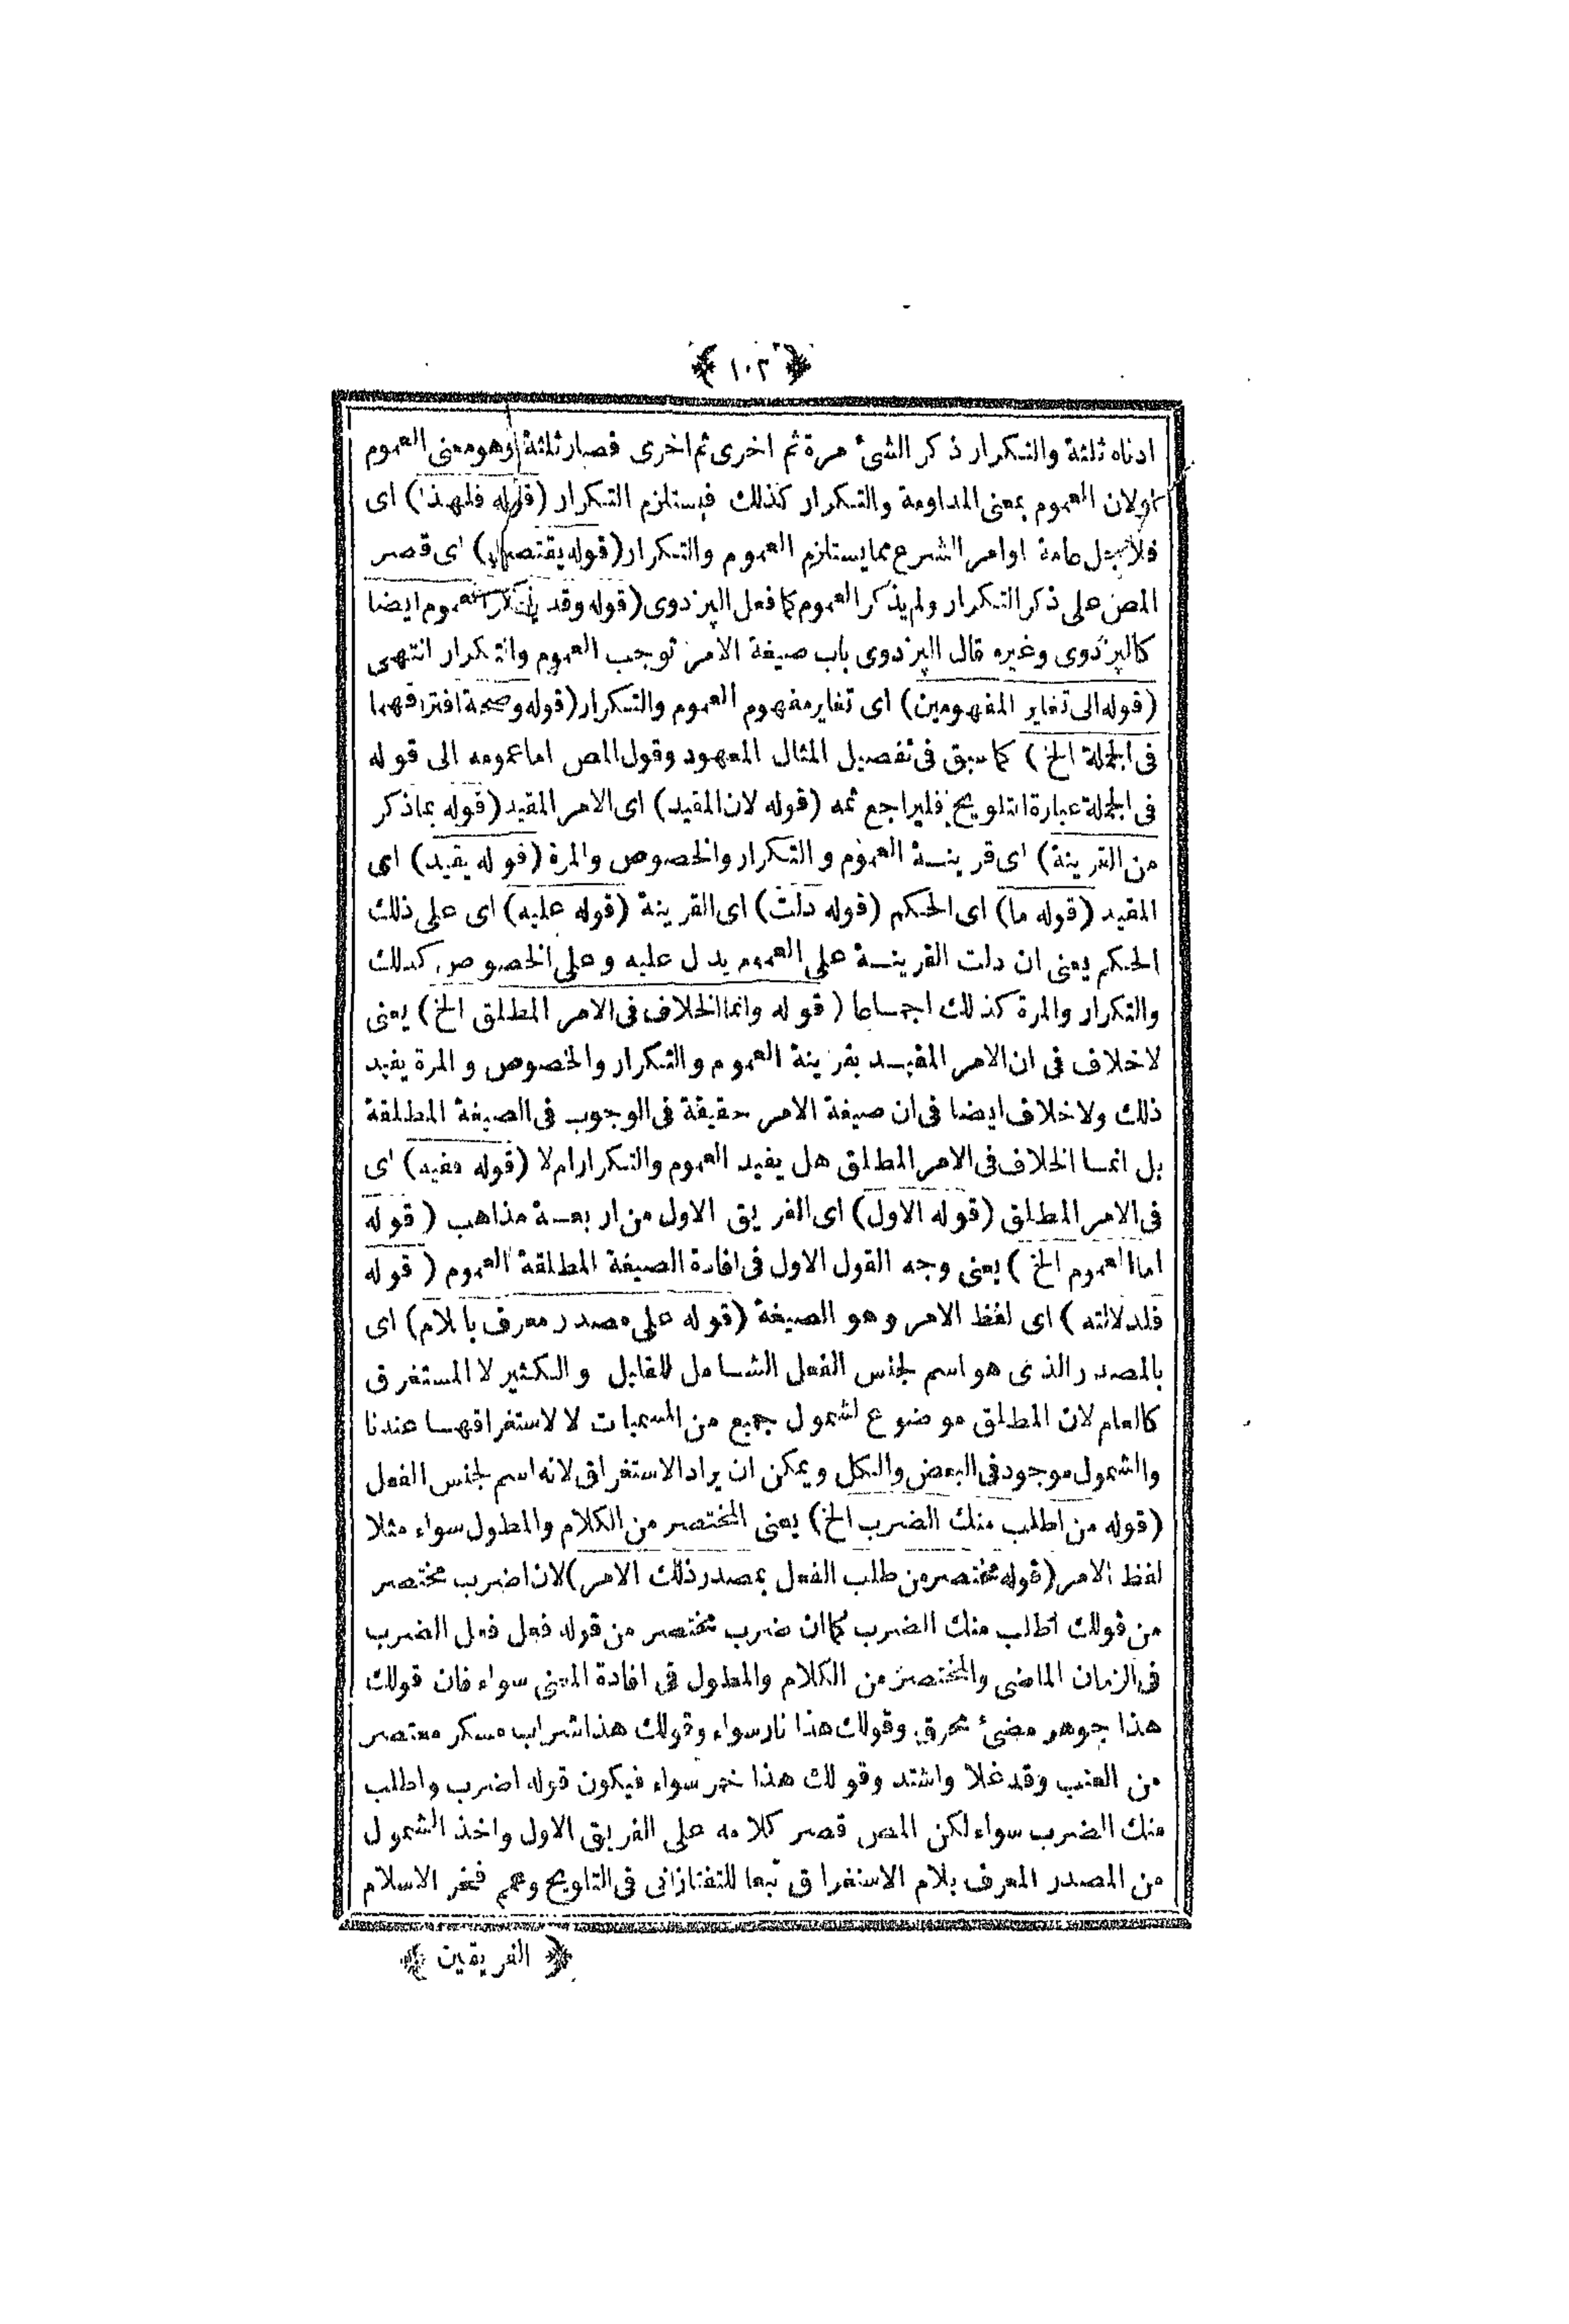 ﴿ ١٠٢ ﴾
ادناه ثلثة والتكرار ذكر الشئ مرة ثم اخرى ثم اخرى فصار ثلثة وهو معنى العموم
اولان العموم بمعنى المداومة والتكرار كذلك فيستلزم التكرار (قوله فلهذا) اى
فلاجل عامة اوامر الشرع مما يستلزم العموم والتكرار (قوله يقتصر) اى قصر
المص على ذكر التكرار ولم يذكر العموم كما فعل البزدوى (قوله وقد يذكر العموم ايضا
كالبزدوى وغيره قال البزدوى باب صيغة الامر توجب العموم والتكرار انتهى
(قوله الى تغاير المفهومين) اى تغاير مفهوم العموم والتكرار (قوله وصحة افتراقهما
فى الجملة الخ) كما سبق فى تفصيل المثال المعهود وقول المص اما عمومه الى قوله
فى الجملة عبارة التلويح فليراجع ثمه (قوله لان المقيد) اى الامر المقيد (قوله بما ذكر
من القرينة) اى قرينة العموم و التكرار والخصوص والمرة (قوله يفيد) اى
المقيد (قوله ما) اى الحكم (قوله دلت) اى القرينة (قوله عليه) اى على ذلك
الحكم يعنى ان دلت القرينة على العموم يدل عليه وعلى الخصوص كذلك
والتكرار والمرة كذلك اجماعا (قوله وانما الخلاف فى الامر المطلق الخ) يعنى
لاخلاف فى ان الامر المقيد بقرينة العموم والتكرار والخصوص و المرة يفيد
ذلك ولاخلاف ايضا فى ان صيغة الامر حقيقة فى الوجوب فى الصيغة المطلقة
بل انما الخلاف فى الامر المطلق هل يفيد العموم والتكرار ام لا (قوله ففيه) اى
فى الامر المطلق (قوله الاول) اى الفريق الاول من اربعة مذاهب (قوله
اما العموم الخ) يعنى وجه القول الاول فى افادة الصيغة المطلقة العموم (قوله
فلدلالته) اى لفظ الامر وهو الصيغة (قوله على مصدر معرف باللام) اى
بالمصدر الذى هو اسم لجنس الفعل الشامل للقليل و الكثير لا المستغرق
كالعام لان المطلق موضوع لشمول جميع من المسميات لا لاستغراقها عندنا
والشمول موجود فى البعض والكل ويمكن ان يراد الاستغراق لانه اسم لجنس الفعل
(قوله من اطلب منك الضرب الخ) يعنى المختصر من الكلام والمطول سواء مثلا
لفظ الامر (قوله مختصر من طلب الفعل بمصدر ذلك الامر) لان اضرب مختصر
من قولك اطلب منك الضرب كما ان ضرب مختصر من قوله فعل فعل الضرب
فى الزمان الماضى والمختصر من الكلام والمطول فى افادة المعنى سواء فان قولك
هذا جوهر مضئ محرق وقولك هذا نار سواء وقولك هذا شراب مسكر معتصر
من العنب وقد غلا واشتد وقولك هذا خمر سواء فيكون قوله اضرب واطلب
منك الضرب سواء لكن المص قصر كلامه على الفريق الاول واخذ الشمول
من المصدر المعرف بلام الاستغراق تبعا للتفتازانى فى التلويح وعمم فخر الاسلام
﴿ الفريقين ﴾